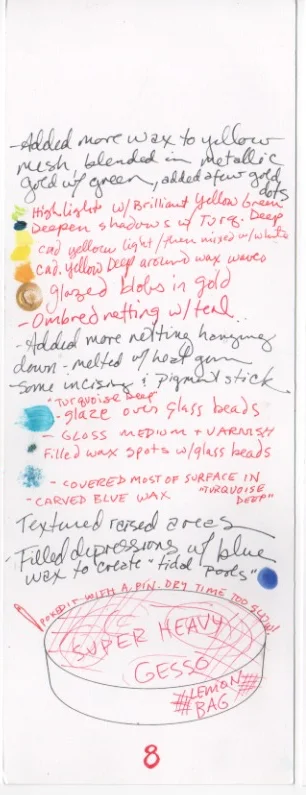 -Added more wax to yellow
mesh blended in metallic
gold w/ green, added a few gold
dots
Highlights w/ Brilliant Yellow Green
Deepen shadows w Turq. Deep
cad yellow light / then mixed w/white
Cad. Yellow Deep around wax waves
glazed blobs in gold
- Ombred netting w/ teal..
- Added more netting hanging
down - melted w/ heat gun
- Some incising & pigment stick
"Turquoise Deep"
- glaze over glass beads
- GLOSS MEDIUM + VARNISH
Filled wax spots w/glass beads
- COVERED MOST OF SURFACE IN
"TURQUOISE
DEEP"
- CARVED BLUE WAX
Textured raised areas
- Filled depressions w/ blue
wax to create "tidal pools"
POKED IT WITH A PIN. DRY TIME TOO SLOW!
SUPER HEAVY
GESSO
#LEMON#
BAG
8